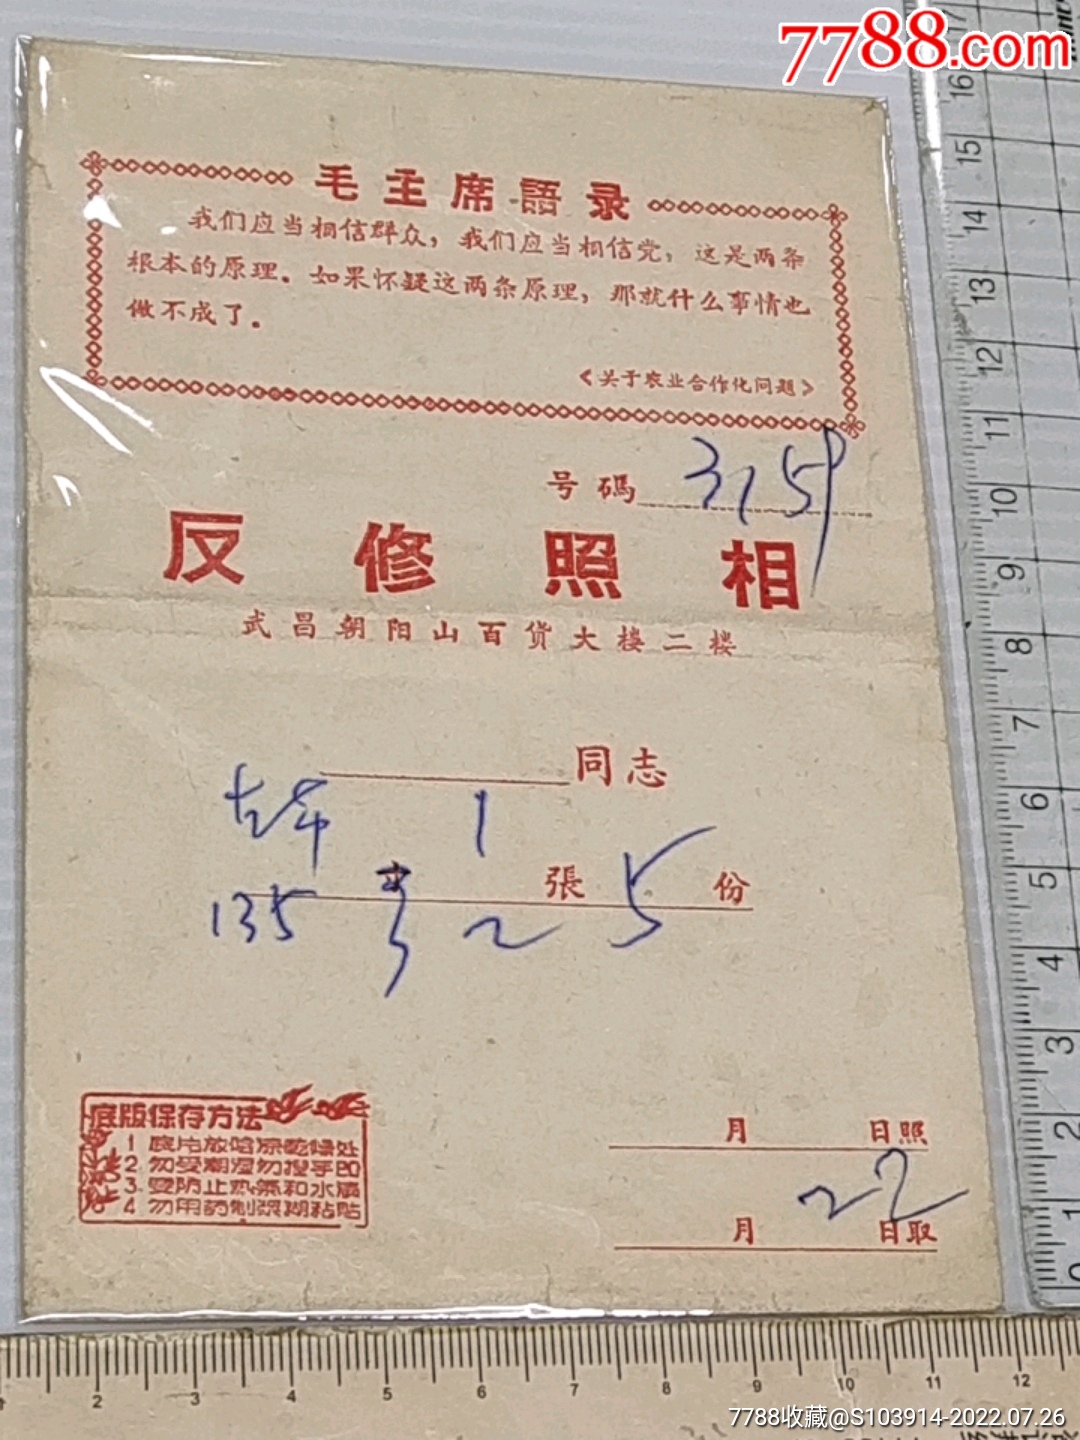 7788.com
毛主席語录
我们应当相信群众，我们应当相信党，这是两条
根本的原理。如果怀疑这两条原理，那就什么事情也
做不成了。
《关于农业合作化问题》
号碼 3159
反修照相
武昌朝阳山百货大楼二楼
同志
1
張 5 份
135 2
底版保存方法
1 底片放哈凉乾燥处
2. 勿受潮湿勿捏手印
3. 要防止热氣和水届
4. 勿用药制浆糊粘贴
月 日照
22
月 日取
17
16
15
14
13
12
11
10
9
8
7
6
5
4
3
2
1
0
1 2 3 4 5 6 7 8 9 10 11 12
7788收藏@S103914-2022.07.26